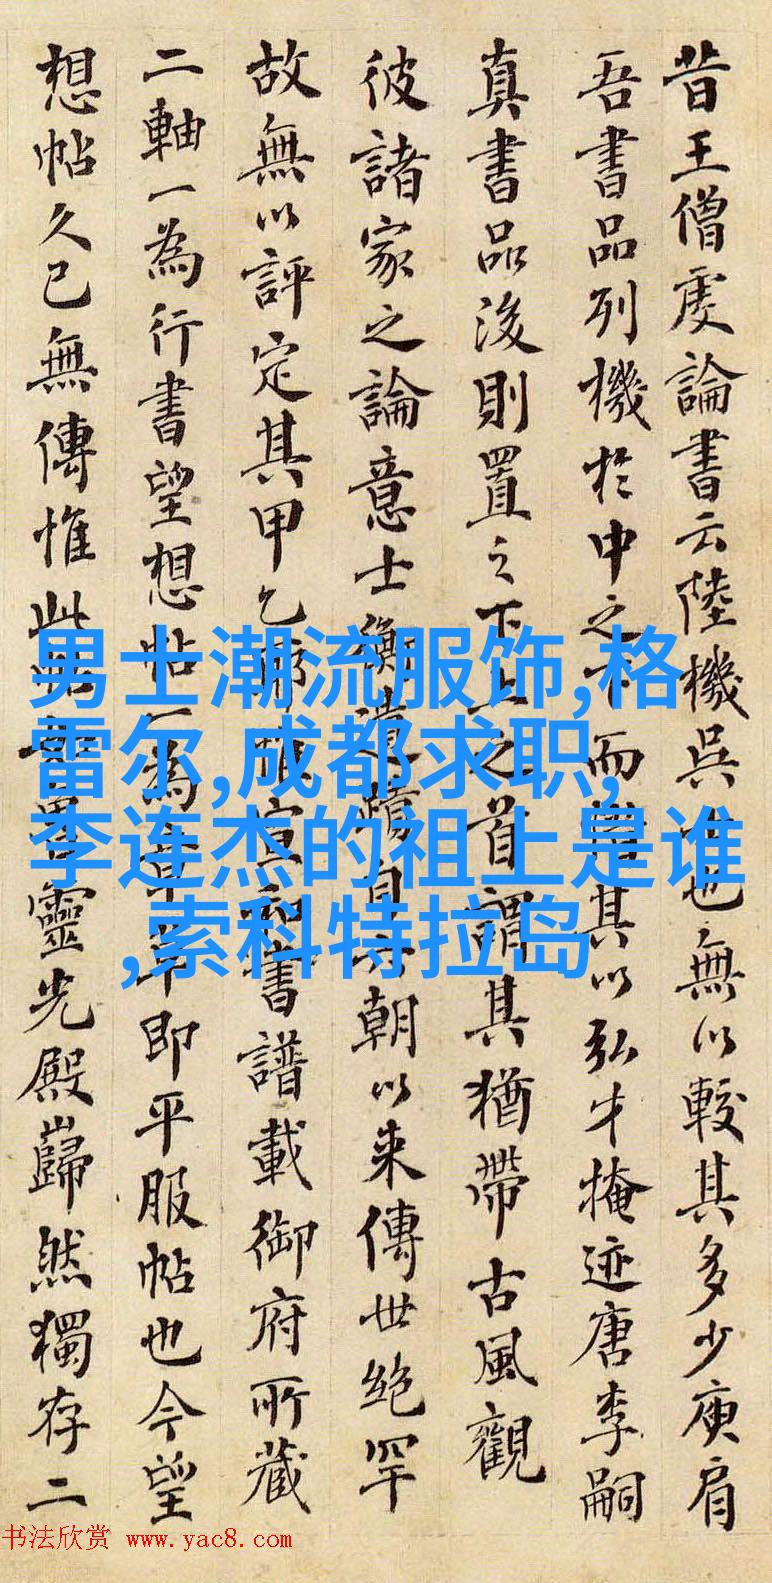 昔王僧虔論書云陸機吳士也無以較其多少庾肩
吾書品列機於中之下而惜其以弘才掩迹唐李嗣
真書品後則置之下上之首謂其猶帶古風觀
彼諸家之論意士衡遺蹟自六朝以来傳世絶罕
故無以評定其甲乙耳惟宣和書譜載御府所蔵
二軸一為行書望想帖一為章草即平服帖也今望
想帖久已無傳惟此如魯靈光殿巋然獨存二
男士潮流服饰,格
雷尔,成都求职,
李连杰的祖上是谁
,索科特拉岛
书法欣赏 www.yac8.com